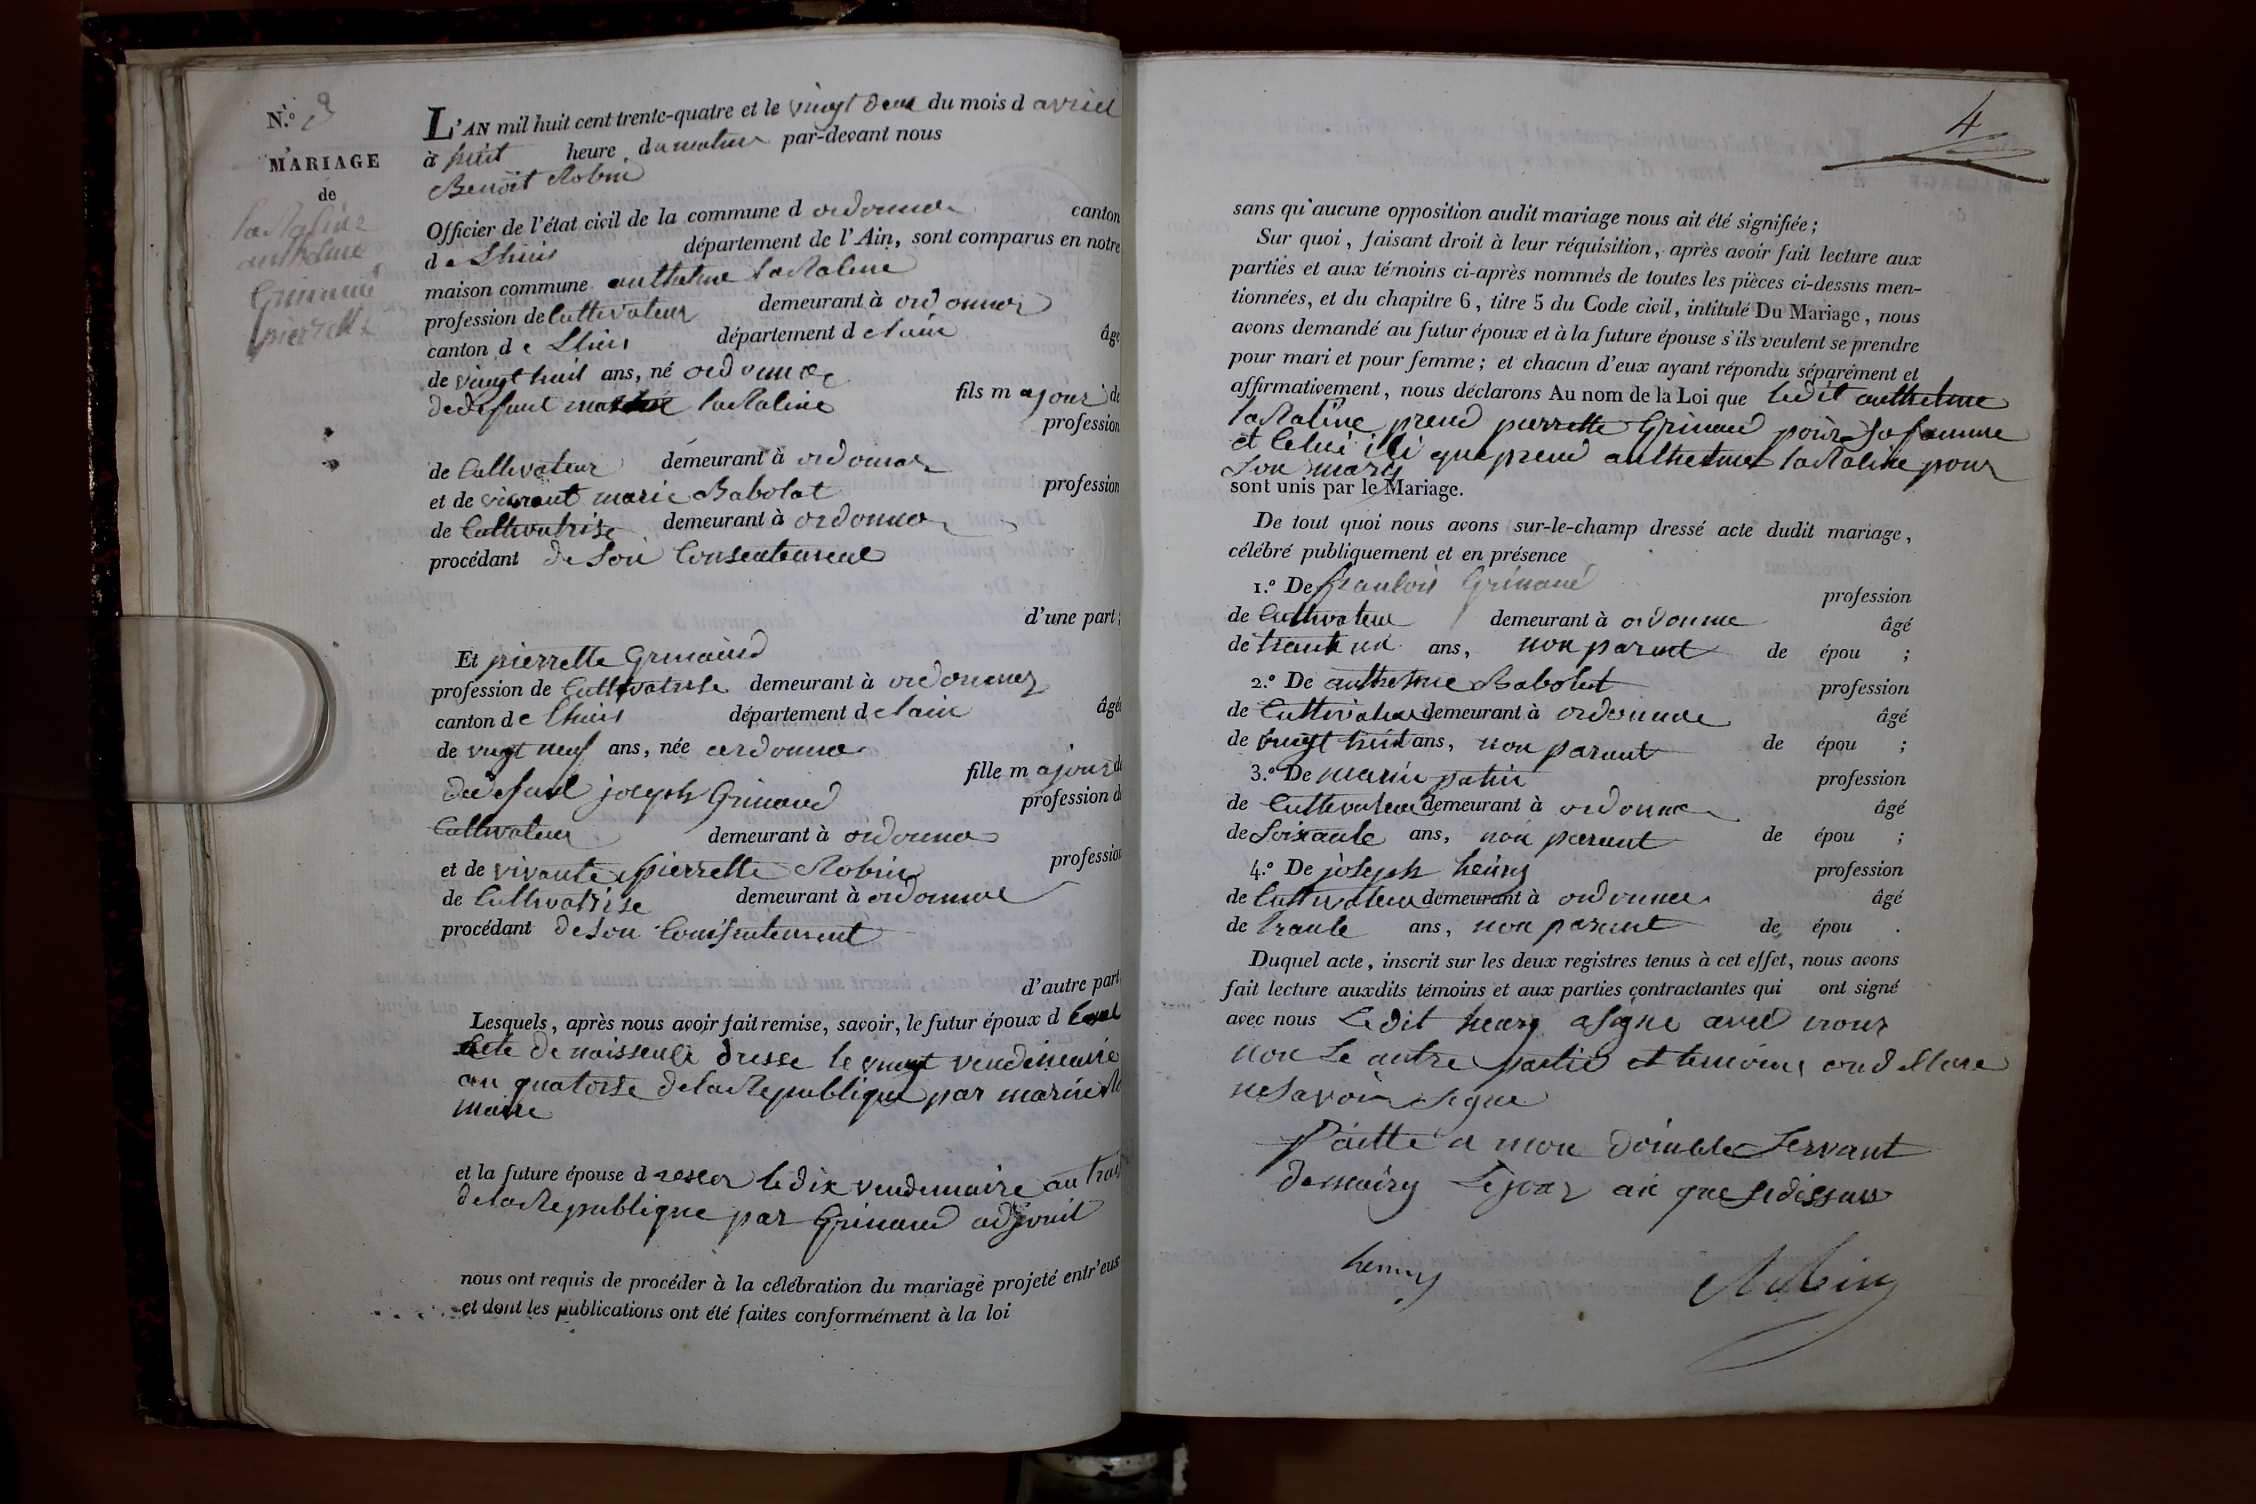 N.o
MARIAGE
de
laRaline
anthelme
Grimand
pierrette
L'AN mil huit cent trente-quatre et le vingt deux du mois d avril
à huit heure du matin par-devant nous
Benoit Robin
Officier de l'état civil de la commune d ordonna canton
de Lhuis département de l'Ain, sont comparus en notre
maison commune anthelme laRaline
profession de Cultivateur demeurant à ordonna
canton de Lhuis département d elain âgé
de vingt huit ans, né ordonna
fils m ajour de
de defunt laRaline
profession
de Cultivateur demeurant à ordonna
et de vivant marie Babolat profession
de Cultivatrise demeurant à ordonna
procédant de Son Consentement
d'une part;
Et pierrette Grimaud
profession de Cultivatrise demeurant à ordonna
canton de Lhuis département d elain âgée
de vingt neuf ans, née ordonna
fille m ajour de
de defunt joseph Grimaud profession de
Cultivateur demeurant à ordonna
et de vivante pierrette Robin profession
de Cultivatrise demeurant à ordonna
procédant de Son Consentement
d'autre part.
Lesquels, après nous avoir fait remise, savoir, le futur époux d
acte de naissence dresse le vingt vendemaire
an quatorse de la Republique par marin
maire
et la future épouse d le dix vendemaire an
de la Republique par Grimaud adjouit
nous ont requis de procéder à la célébration du mariage projeté entr'eux
et dont les publications ont été faites conformément à la loi
4
sans qu'aucune opposition audit mariage nous ait été signifiée;
Sur quoi, faisant droit à leur réquisition, après avoir fait lecture aux
parties et aux témoins ci-après nommés de toutes les pièces ci-dessus men-
tionnées, et du chapitre 6, titre 5 du Code civil, intitulé Du Mariage, nous
avons demandé au futur époux et à la future épouse s'ils veulent se prendre
pour mari et pour femme; et chacun d'eux ayant répondu séparément et
affirmativement, nous déclarons Au nom de la Loi que ledit anthelme
laRaline prend pierrette Grimaud pour Sa famme
et prend anthelme laRaline pour
Son mary
sont unis par le Mariage.
De tout quoi nous avons sur-le-champ dressé acte dudit mariage,
célébré publiquement et en présence
1.o De franLois Grimaud profession
de Cultivateur demeurant à ordonna âgé
de trante un ans, non parant de épou ;
2.o De anthelme Babolat profession
de Cultivateur demeurant à ordonna âgé
de vingt huit ans, non parant de épou ;
3.o De marin patin profession
de Cultivateur demeurant à ordonna âgé
de Soixante ans, non parant de épou ;
4.o De joseph henry profession
de Cultivateur demeurant à ordonna âgé
de trante ans, non parant de épou .
Duquel acte, inscrit sur les deux registres tenus à cet effet, nous avons
fait lecture auxdits témoins et aux parties contractantes qui ont signé
avec nous Ledit henry a Signe avec nous
non Le autre partie et temoins on dellare
ne Savoir Signe
faitte a mon domicile Servant
de mairy Le jour
henry
Robin